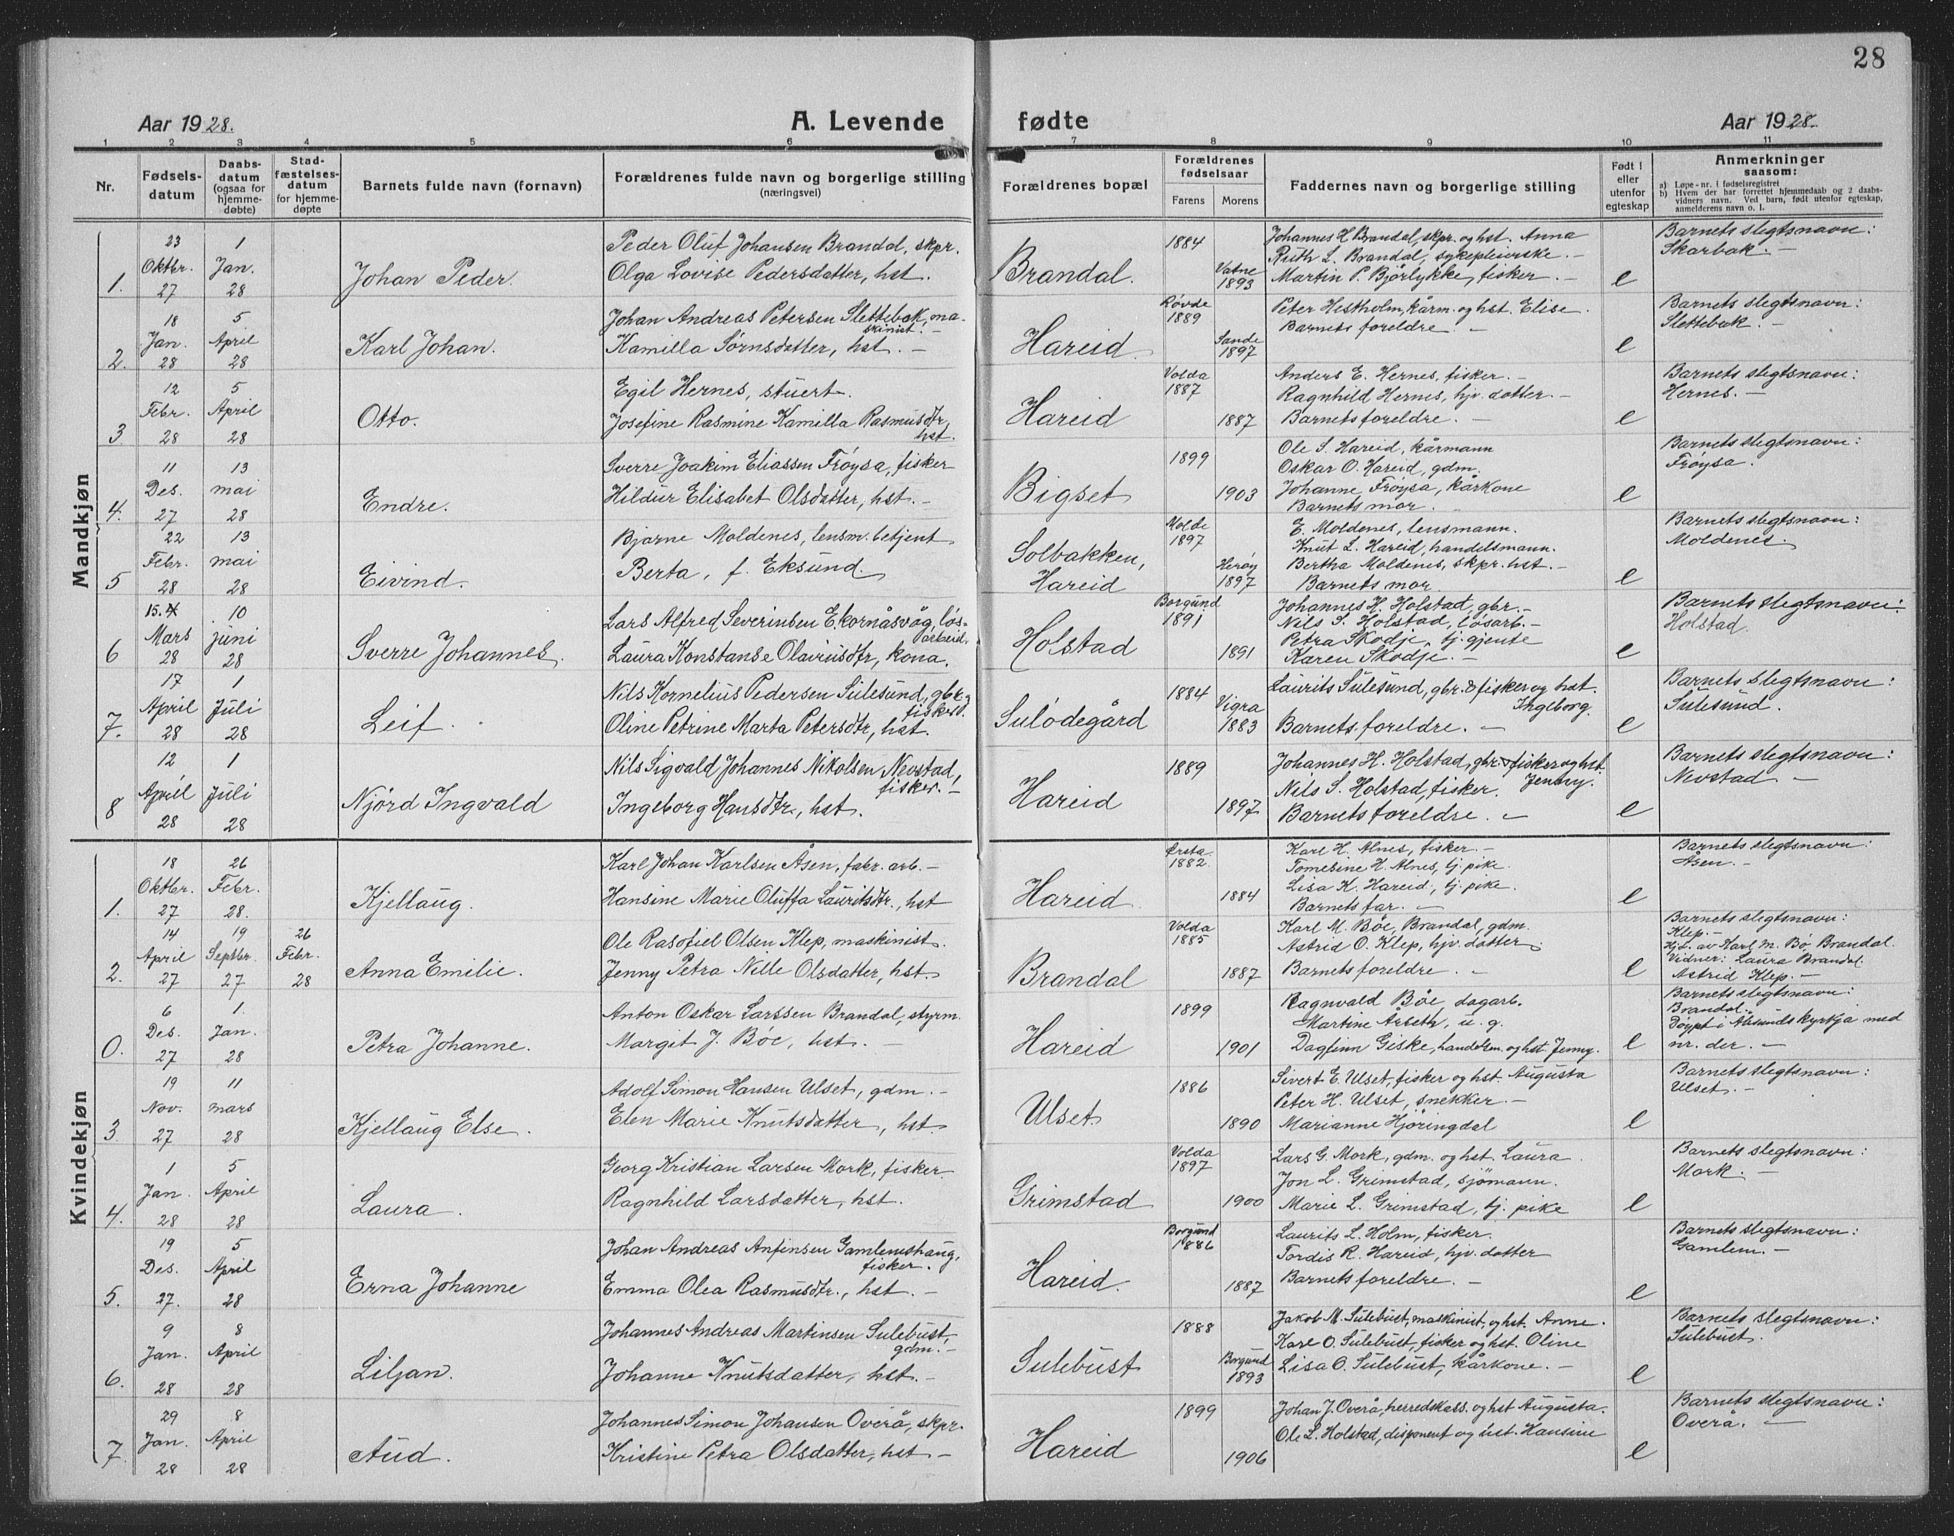 28
Aar 1928.
A. Levende
fødte
Aar 1928.
1 2 3 4 5 6 7 8 9 10 11
Nr.
Fødsels-
datum
Daabs-
datum
(ogsaa for
hjemme-
døbte)
Stad-
fæstelses-
datum
for hjemme-
døpte
Barnets fulde navn (fornavn)
Forældrenes fulde navn og borgerlige stilling
(næringsvei)
Forældrenes bopæl
Forældrenes
fødselsaar
Farens Morens
Faddernes navn og borgerlige stilling
Født i
eller
utenfor
egteskap
Anmerkninger
saasom:
a) Løpe-nr. i fødselsregistret
b) Hvem der har forrettet hjemmedaab og 2 daabs-
vidners navn. Ved barn, født utenfor egteskap,
anmelderens navn o. l.
Mandkjøn
1.
23
Oktbr.
27
1
Jan.
28
Johan Peder.
Peder Oluf Johansen Brandal, skpr.
Olga Lovise Pedersdatter, hst.
Brandal.
1884
Vatne
1893
Johannes H Brandal, skpr. og hst. Anna
Ruth L. Brandal, sykepleierske. –
Martin P. Bjørlykke, fisker. –
e
Barnets slegtsnavn:
Skarbak. –
2.
18
Jan.
28
5
April
28
Karl Johan.
Johan Andreas Petersen Slettebak, ma-
skinist. –
Kamilla Sørnsdatter, hst. –
Hareid.
Røvde
1889
Sande
1897
Peter Hestholm, kårm. og hst. Elise.
Barnets foreldre. –
e
Barnets slegtsnavn:
Slettebak. –
3
12
Febr.
28
5
April
28
Otto.
Egil Hernes, stuert.
Josefine Rasmine Kamilla Rasmusdtr,
hst.
Hareid
Volda
1887
1887
Anders E. Hernes, fisker. –
Ragnhild Hernes, hjv. datter. –
Barnets foreldre. –
e
Barnets slegtsnavn:
Hernes. –
4.
11
Des.
27
13
mai
28
Endre.
Sverre Joakim Eliassen Frøysa, fisker
Hildur Elisabet Olsdatter, hst. –
Bigset
1899
1903
Ole S. Hareid, kårmann
Oskar O. Hareid, gdm.
Johanne Frøysa, kårkone
Barnets mor. –
e
Barnets slegtsnavn:
Frøysa.
5
22
Febr.
28
13
mai
28
Eivind.
Bjarne Moldenes, lensm. betjent
Berta, f. Eksund.
Solbakken,
Hareid
Molde
1897
Herøy
1897
E. Moldenes, lensmann.
Knut L. Hareid, handelsmann.
Bertha Moldenes, skpr. hst. –
Barnets mor
e
Barnets slegtsnavn:
Moldenes.
6
15.
Mars
28
10
juni
28
Sverre Johannes.
Lars Alfred Severinsen Ekornåsvåg, løs-
arbeid.
Laura Konstanse Olaviusdtr, kona.
Holstad
Borgund
1891
1891
Johannes H. Holstad, gbr. –
Nils S. Holstad, løsarb. –
Petra Skodje, tj. gjente
Karen Skodje. –
e
Barnets slegtsnavn:
Holstad.
7.
17
April
28
1
Juli
28
Leif.
Nils Kornelius Pedersen Sulesund, gbr. &
fisker.
Oline Petrine Marta Petersdtr, hst.
Sulødegård
1884
Vigra
1883
Laurits Sulesund, gbr. & fisker og hst.
Ingeborg.
Barnets foreldre. –
e
Barnets slegtsnavn:
Sulesund.
8
12
April
28
1
Juli
28
Njörd Ingvald
Nils Sigvald Johannes Nikolsen Nevstad,
fisker. –
Ingeborg Hansdtr, hst.
Hareid
1889
1897
Johannes H. Holstad, gbr. & fisker og hst.
Jensvy.
Nils S. Holstad, fisker.
Barnets foreldre. –
e
Barnets slegtsnavn:
Nevstad –
Kvindekjøn
1.
18
Oktbr.
27
26
Febr.
28.
Kjellaug.
Karl Johan Karlsen Åsen, fabr. arb. –
Hansine Marie Oluffa Lauritsdtr., hst
Hareid.
Ørsta
1882
1884
Karl H. Alnes, fisker. –
Tomesine H. Alnes, tj. pike.
Lisa K. Hareid, tj. pike.
Barnets far. –
e
Barnets slegtsnavn:
Åsen. –
2.
14
April
27
19
Septbr.
27
26
Febr.
28
Anna Emilie.
Ole Rasofiel Olsen Klep, maskinist.
Jenny Petra Nille Olsdatter, hst
Brandal
Volda
1885
1887
Karl M. Böe, Brandal, gdm.
Astrid O. Klep, hjv. datter.
Barnets foreldre. –
e
Barnets slegtsnavn:
Klep. –
Hjd. av Karl M. Bø Brandal.
Vidner: Laura Brandal.
Astrid Klep. –
0.
6
Des.
27
1.
Jan.
28
Petra Johanne.
Anton Oskar Larssen Brandal, styrm.
Margit J. Böe, hst. –
Hareid
1899
1901
Ragnvald Böe, dagarb.
Martine Arseth, u. g.
Dagfinn Giske, handelsm. og hst Jenny.
e
Barnets slegtsnavn:
Brandal.
Døypt i Ålesunds kyrkja med
nr. der. –
3
19
Nov.
27
11
mars
28
Kjellaug Else.
Adolf Simon Hansen Ulset, gdm. –
Elen Marie Knutsdatter, hst
Ulset
1886
1890
Sivert E. Ulset, fisker og hst. Augusta
Peter H. Ulset, snekker. –
Marianne Hjøringdal
e
Barnets slegtsnavn:
Ulset. –
4.
1
Jan.
28
5
April
28
Laura.
Georg Kristian Larsen Mork, fisker.
Ragnhild Larsdatter, hst.
Grimstad
Volda
1897
1900
Lars G. Mork, gdm. og hst. Laura.
Jon L. Grimstad, sjömann.
Marie L. Grimstad, tj. pike
e
Barnets slegtsnavn:
Mork. –
5.
19
Des.
27.
5
April
28
Erna Johanne
Johan Andreas Anfinsen Gamlemshaug,
fisker.
Emma Olea Rasmusdtr., hst. –
Hareid.
Borgund
1886
1887
Laurits L. Holm, fisker.
Tordis R. Hareid, hjv. datter
Barnets foreldre. –
e
Barnets slegtsnavn:
Gamlem. –
6.
9
Jan.
28
8
April
28
Liljan.
Johannes Andreas Martinsen Sulebust,
gdm. –
Johanne Knutsdatter, hst. –
Sulebust
1888
Borgund
1893
Jakob M. Sulebust, maskinist, og hst. Anne.
Karl O. Sulebust, fisker og hst. Oline
Lisa O. Sulebust, kårkone. –
e
Barnets slegtsnavn:
Sulebust.
7.
29
Jan.
28
8
April
28
Aud.
Johannes Simon Johansen Overå, skpr.
Kristine Petra Olsdatter, hst –
Hareid
1899
1906
Johan J. Overå, herredskass. og hst Augusta.
Ole L. Holstad, disponent og hst. Hansine
e
Barnets slegtsnavn:
Overå. –